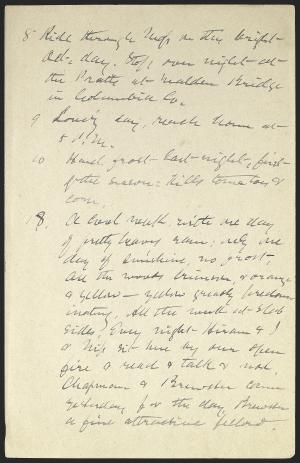 8 Ride through on this bright
day. Stop over night at
the Pratts at Malden Bridge
in Columbia Co.
9 Lovely day, reach home at
5 P.M.
10 Hard frost last night, first
of the season: kills tomatoes &
corn.
18. A cool week, with one day
of pretty heavy rain; only one
day of sunshine, no frost.
All the woods crimson, & orange
& yellow — yellow greatly predom-
inating. All the week at Slab
Sides. Every night Hiram & I
& Nip sit here by our open
fire & read & talk & nod.
Chapman & Brewster came
yesterday for the day. Brewster
a fine attractive fellow.